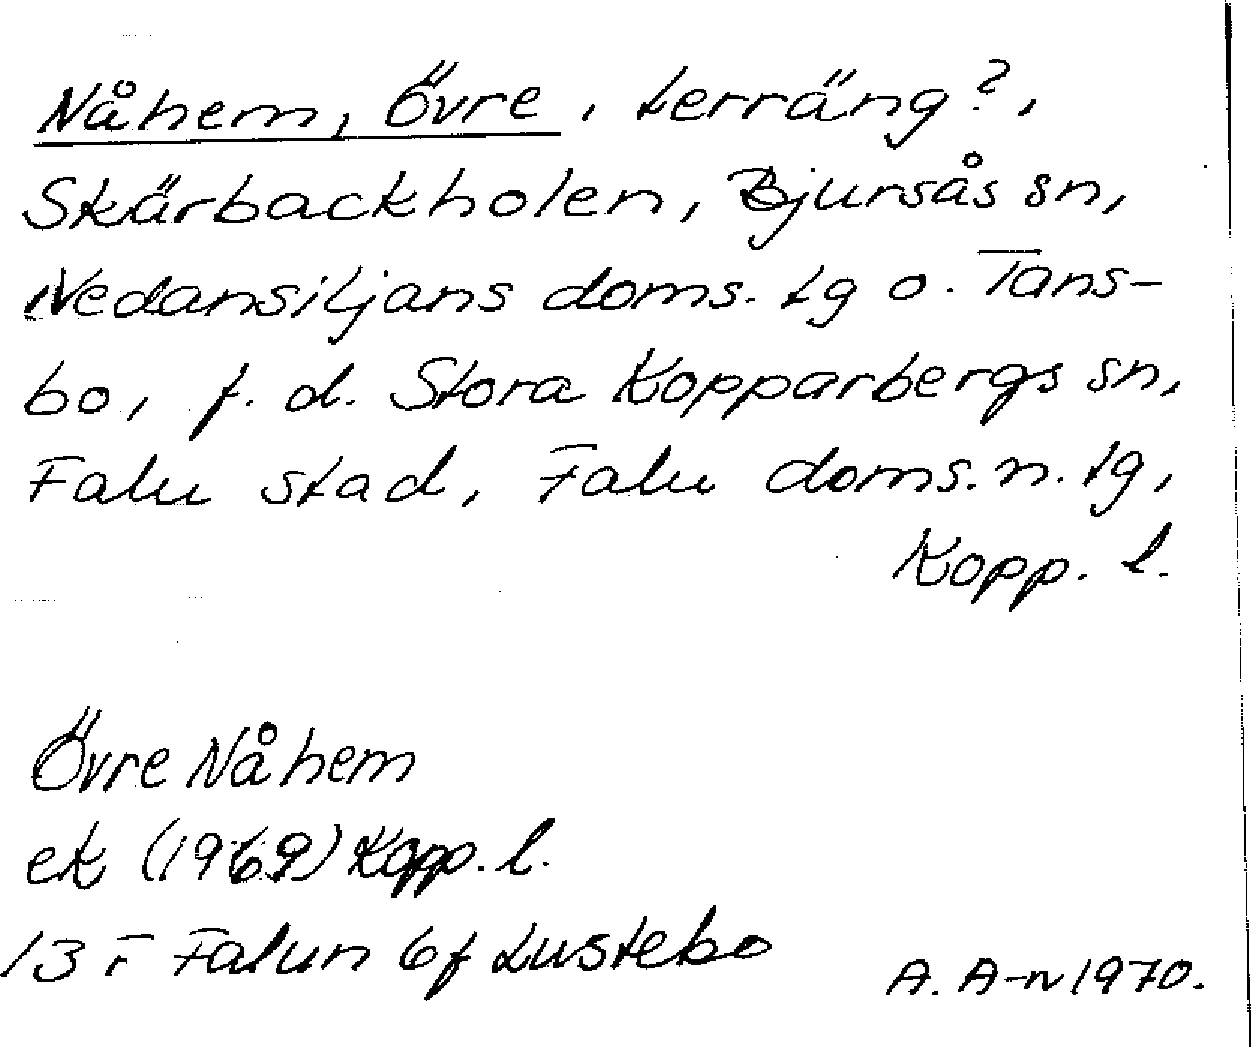 Nåhem, Övre, terräng?,
Skärbackholen, Bjursås sn,
Nedansiljans doms. tg o. Tans-
bo, f. d. Stora Kopparbergs sn,
Falu stad, Falu doms. n. tg,
Kopp. l.
Övre Nåhem
ek (1969) Kopp. l.
13 F Falun 6f Lustebo
A. A-n 1970.